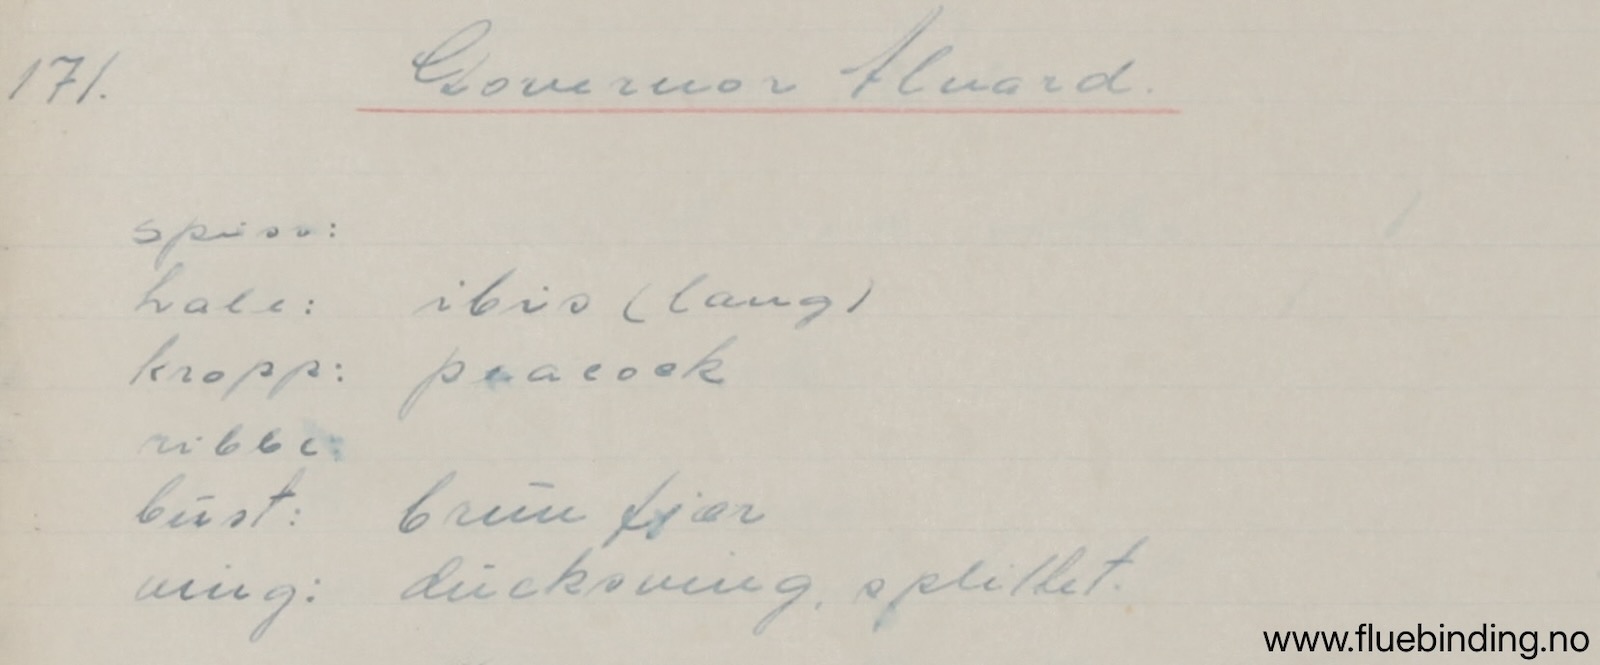 171. Governor Alvard.
spiss:
hale: ibis (lang)
kropp: peacock
ribbe:
bust: brun fjær
ving: ducksving, splittet.
www.fluebinding.no